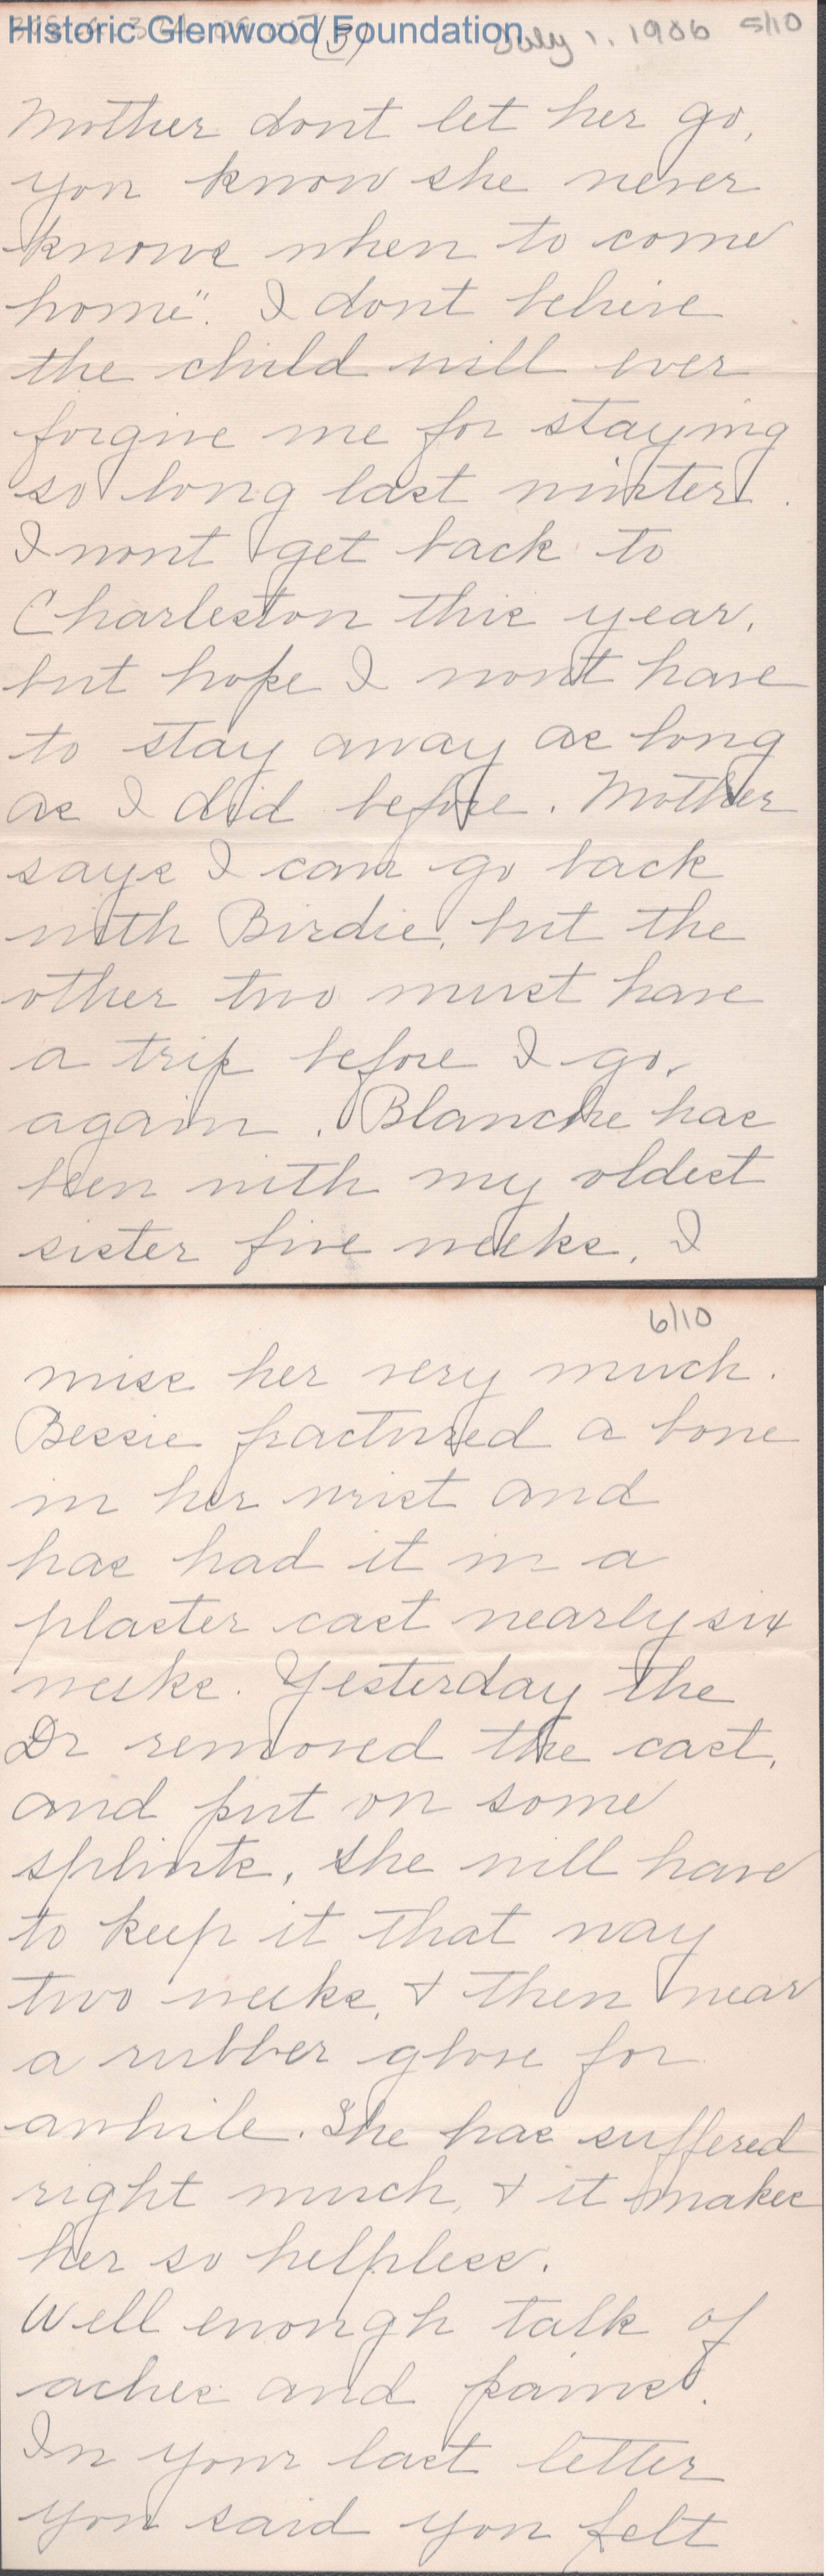 Historic Glenwood Foundation
(5) July 1. 1906 5/10
Mother dont let her go,
you know she never
knows when to come
home". I dont belive
the child will ever
forgive me for staying
so long last winter.
I wont get back to
Charleston this year,
but hope I wont have
to stay away as long
as I did before. Mother
says I can go back
with Birdie, but the
other two must have
a trip before I go,
again. Blanche has
been with my oldest
sister five weeks. I
6/10
miss her very much.
Bessie fractured a bone
in her wrist and
has had it in a
plaster cast nearly six
weeks. Yesterday the
Dr removed the cast,
and put on some
splints, she will have
to keep it that way
two weeks, & then wear
a rubber glove for
awhile. She has suffered
right much, & it makes
her so helpless.
Well enough talk of
aches and pains.
In your last letter
you said you felt